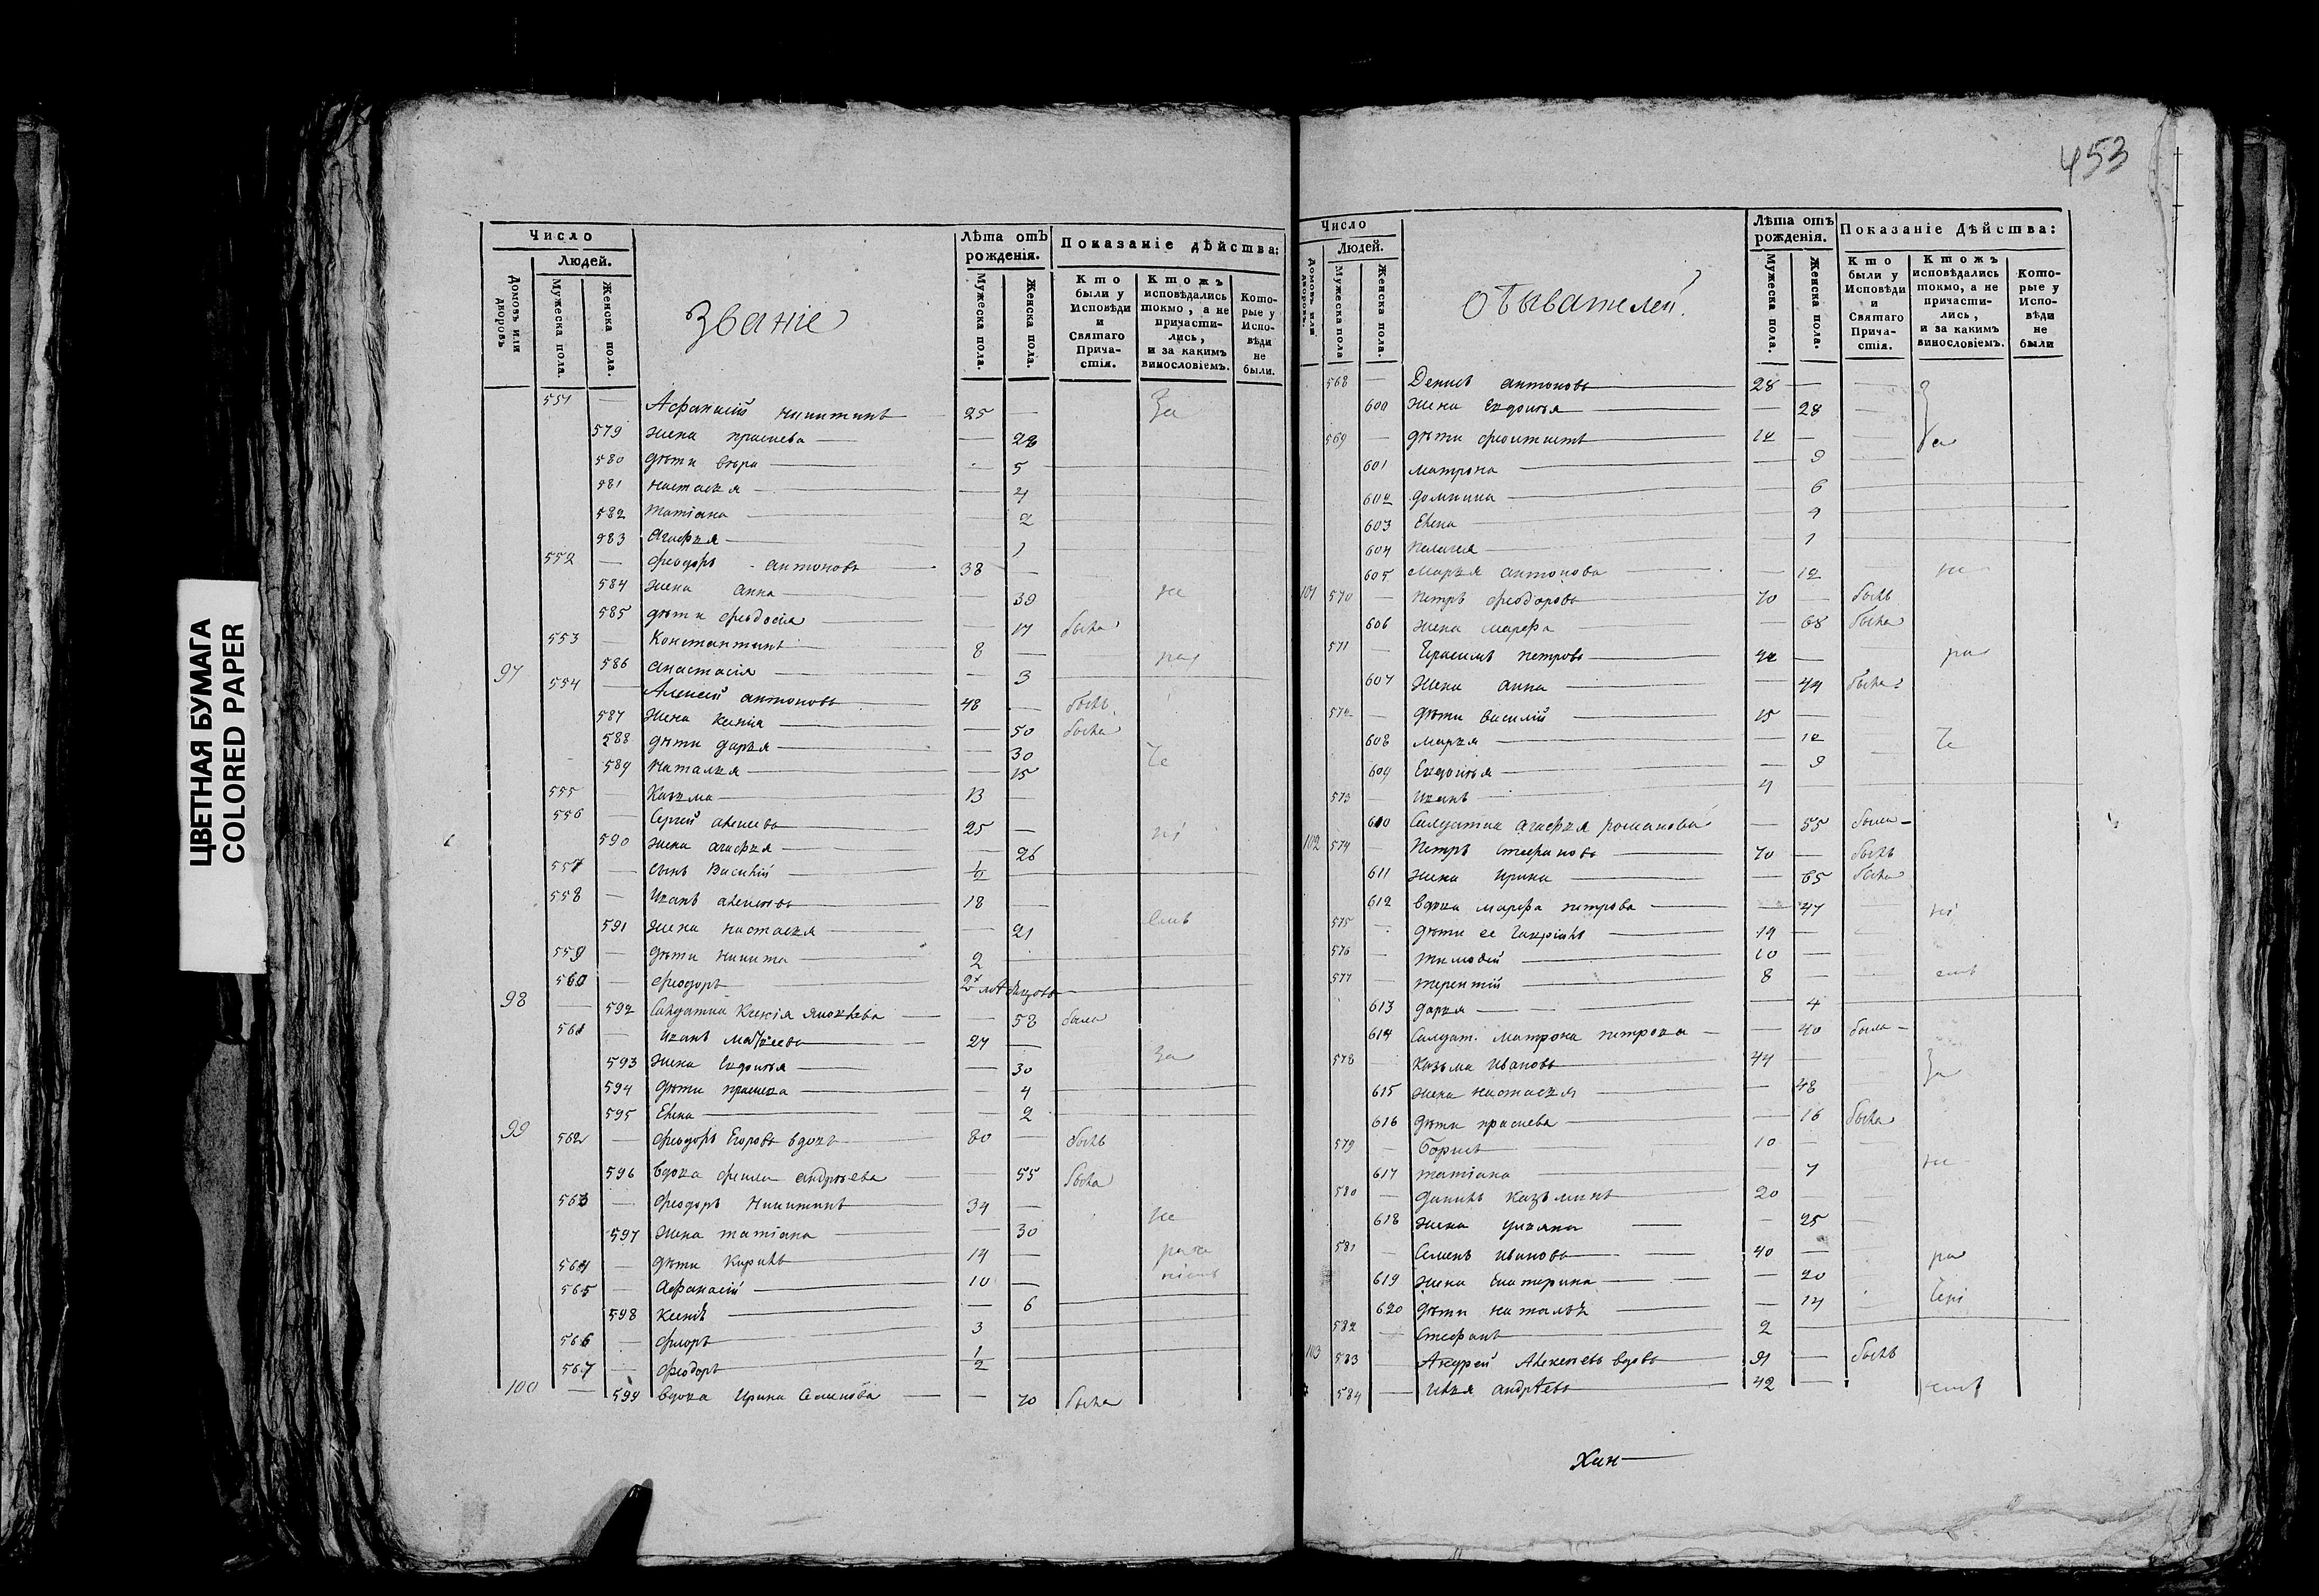 ЦВЕТНАЯ БУМАГА
COLORED PAPER
453
Число
Людей.
Домовъ или дворовъ
Мужеска пола.
Женска пола.
Званіе
Лѣта отъ рожденія.
Мужеска пола.
Женска пола.
Показаніе дѣйства:
Кто были у Исповѣди и Святаго Прича-стія.
Ктожъ исповѣдались токмо, а не причасти-лись, и за какимъ винословіемъ.
Кото-рые у Испо-вѣди не были.
551 — Афанасій Никитинъ 25 — За
579 жена праскева — 28
580 дѣти вѣра — 5
581 настасья — 4
582 татіана — 2
583 Агафья — 1
552 — феодоръ антоновъ 38 —
584 жена анна — 39 не
585 дѣти феодосія — 17 была
553 — Константинъ 8 — ра
586 анастасія — 3
97 554 — Алексей антоновъ 48 — былъ
587 жена ксенія — 50 была
588 дѣти дарья — 30
589 наталья — 15 че
555 — Казма 13 —
556 — Сергей алексеевъ 25 — ні
590 жена агафья — 26
557 — сынъ Василій 1/2
558 — Иванъ алексеевъ 18 —
591 жена настасья — 21 емъ
559 — дѣти никита 2
560 — феодоръ 2х мѣсяцовъ
98 — 592 Салдатка Ксенія Яковлева — 58 была
561 — Иванъ матвеевъ 27 —
593 жена Евдокья — 30 за
594 дѣти праскева — 4
595 Елена — 2
99 562 — феодоръ Егоровъ вдовъ 80 — былъ
596 вдова фекла андрѣева — 55 была
563 — феодоръ Никитинъ 34 —
597 жена татіана — 30 не
564 — дѣти Кирилъ 14 —
565 — Афанасій 10 —
598 ксенія — 6
566 — флоръ 3
567 — феодоръ 1/2
100 — 599 вдова Ирина Семенова — 70 была
Число
Людей.
Домовъ или дворовъ.
Мужеска пола
Женска пола.
обывателей.
Лѣта отъ рожденія.
Мужеска пола.
Женска пола.
Показаніе Дѣйства:
Кто были у Исповѣди и Святаго Прича-стія.
Ктожъ исповѣдались токмо, а не причасти-лись, и за какимъ винословіемъ.
Кото-рые у Испо-вѣди не были
568 — Денисъ антоновъ 28 —
600 жена Евдокья — 28
569 — дѣти феоктистъ 12 — За
601 матрона — 9
602 домнина — 6
603 Елена — 4
604 пелагея — 1
605 Марья антонова — 12 не
101 570 — петръ феодоровъ 70 — былъ
606 жена марфа — 68 была
571 — Герасимъ петровъ 42 — ра
607 жена анна — 44 была
572 — дѣти василій 15 —
608 марья — 12 че
609 Евдокья — 9
573 — Иванъ 4
610 Салдатка агафья романова — 55 была
102 574 — Петръ стефановъ 70 — былъ
611 жена ирина — 65 была
612 вдова марфа петрова — 47 ні
575 — дѣти ее Гаврилъ 14 —
576 — тимофей 10 —
577 — терентій 8 — емъ
613 дарья — 4
614 Салдат. матрона петрова — 40 была
578 — Казьма ивановъ 44 — За
615 жена настасья — 48
616 дѣти праскева — 16 была
579 — Борисъ 10 —
617 татіана — 7 не
580 — данилъ казьминъ 20
618 жена ульяна — 25
581 — Семенъ ивановъ 40 — ра
619 жена Екатерина — 20
620 дѣти наталья — 14 чені
582 — стефанъ 2
103 583 Андрей Алексеевъ вдовъ 91 — былъ
584 — Илья андрѣевъ 42 — емъ